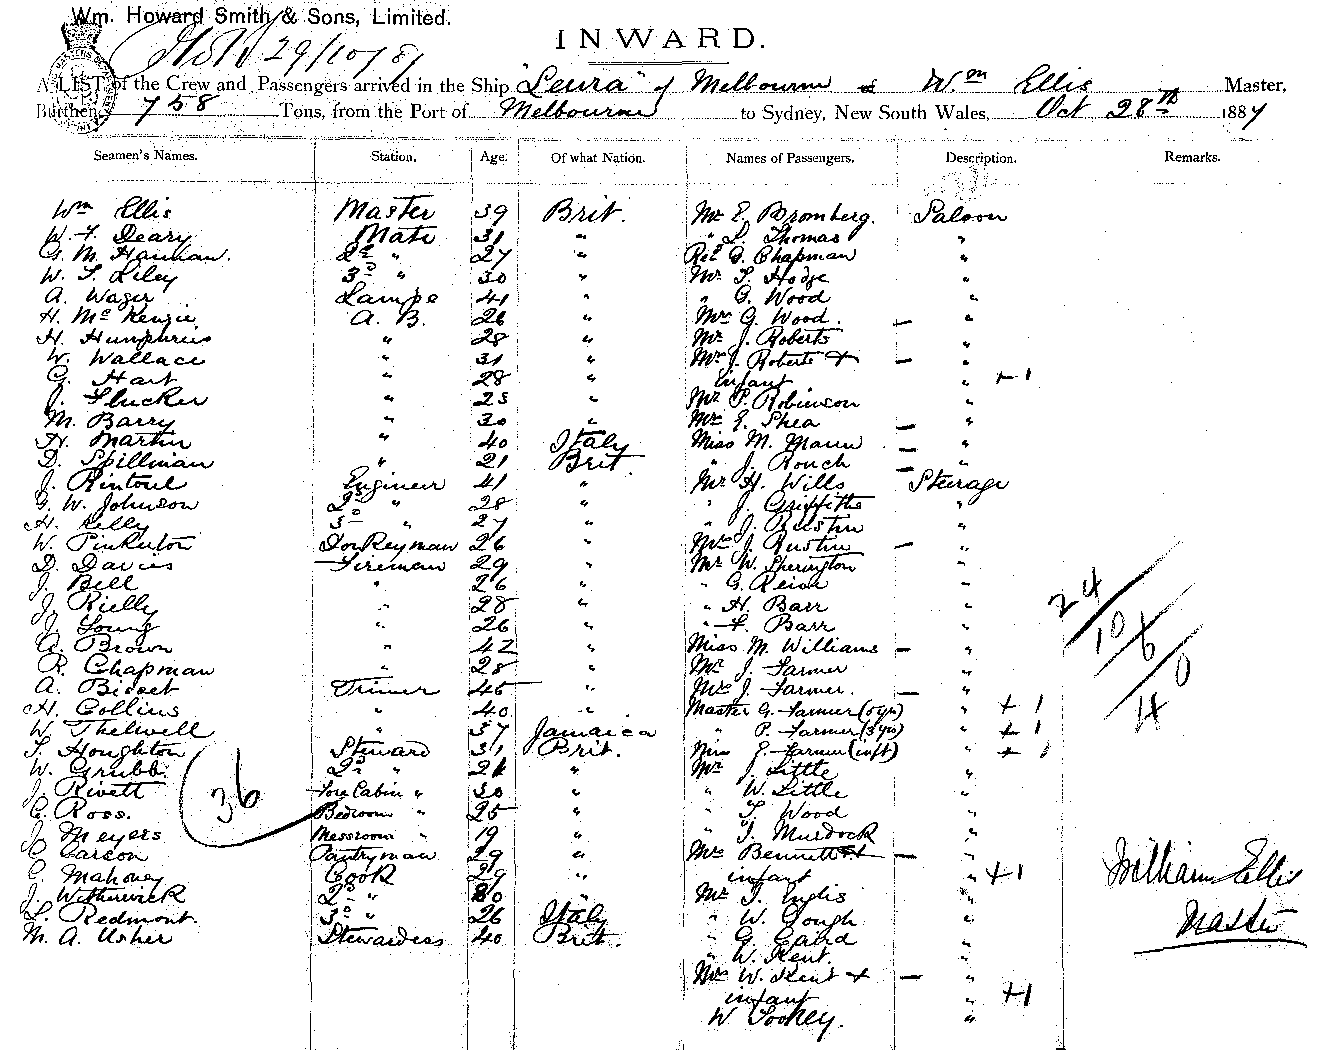 Wm. Howard Smith & Sons, Limited.
29/10/8
INWARD.
A LIST of the Crew and Passengers arrived in the Ship "Leura" of Melbourne Wm Ellis Master,
Burthen 758 Tons, from the Port of Melbourne to Sydney, New South Wales, Oct 28th 1887
Seamen's Names. Station. Age. Of what Nation. Names of Passengers. Description. Remarks.
Wm Ellis Master 39 Brit. Mr E. Bromberg. Saloon
W. F. Deary Mate 31 " " L. Thomas "
G. M. Hannan. 2d " 27 " Revd G. Chapman "
W. S. Liley 3d " 30 " Mr T. Hodge "
A. Wager Lamps 41 " " G. Wood "
H. McKenzie A. B. 26 " Mrs G. Wood — "
H. Humphries " 28 " Mr J. Roberts "
W. Wallace " 31 " Mrs J. Roberts + — "
G. Hart " 28 " infant " +1
J. Flucker " 25 " Mr P. Robinson "
M. Barry " 30 " Mrs E. Shea — "
H. Martin " 40 Italy Miss M. Mann — "
D. Spillman " 21 Brit. " J. Rouch — "
J. Rintoul Engineer 41 " Mr H. Wills Steerage
G. W. Johnson 2d " 28 " " J. Griffiths "
H. Kelly 3d " 27 " " J. Rustin "
W. Pinkerton Donkeyman 26 " Mrs J. Rustin — "
D. Davies Fireman 29 " Mr W. Sherington "
J. Bell " 26 " " G. "
J. Rielly " 28 " " H. Barr "
J. Young " 26 " " F. Barr "
A. Brown " 42 " Miss M. Williams — "
R. Chapman " 28 " Mr J. Farmer "
A. Bisset Trimer 45 " Mrs J. Farmer. — "
H. Collins " 40 " Master G. Farmer (5 yrs) " +1
W. Thelwell " 37 Jamaica " P. Farmer (3 yrs) " +1
T. Houghton Steward 31 Brit. Miss E. Farmer (inft) " +1
W. Grubb 2d " 21 " Mr J. Little "
J. Rivett Fore Cabin " 30 " " W. Little "
C. Ross. Bedroom " 25 " " T. Wood "
J. Meyers Messroom " 19 " " T. Murdock "
C. Carson Pantryman 29 " Mrs Bennett + — "
C. Mahoney Cook 29 " infant " +1
J. Witherwick 2d " 30 " Mr T. Inglis "
L. Redmont. 3d " 26 Italy " W. Gough "
M. A. Usher Stewardess 40 Brit. " G. Caird "
" W. Kent. "
Mrs W. Kent + — "
infant " +1
W Tookey. "
36
24
10
6
0
40
William Ellis
Master